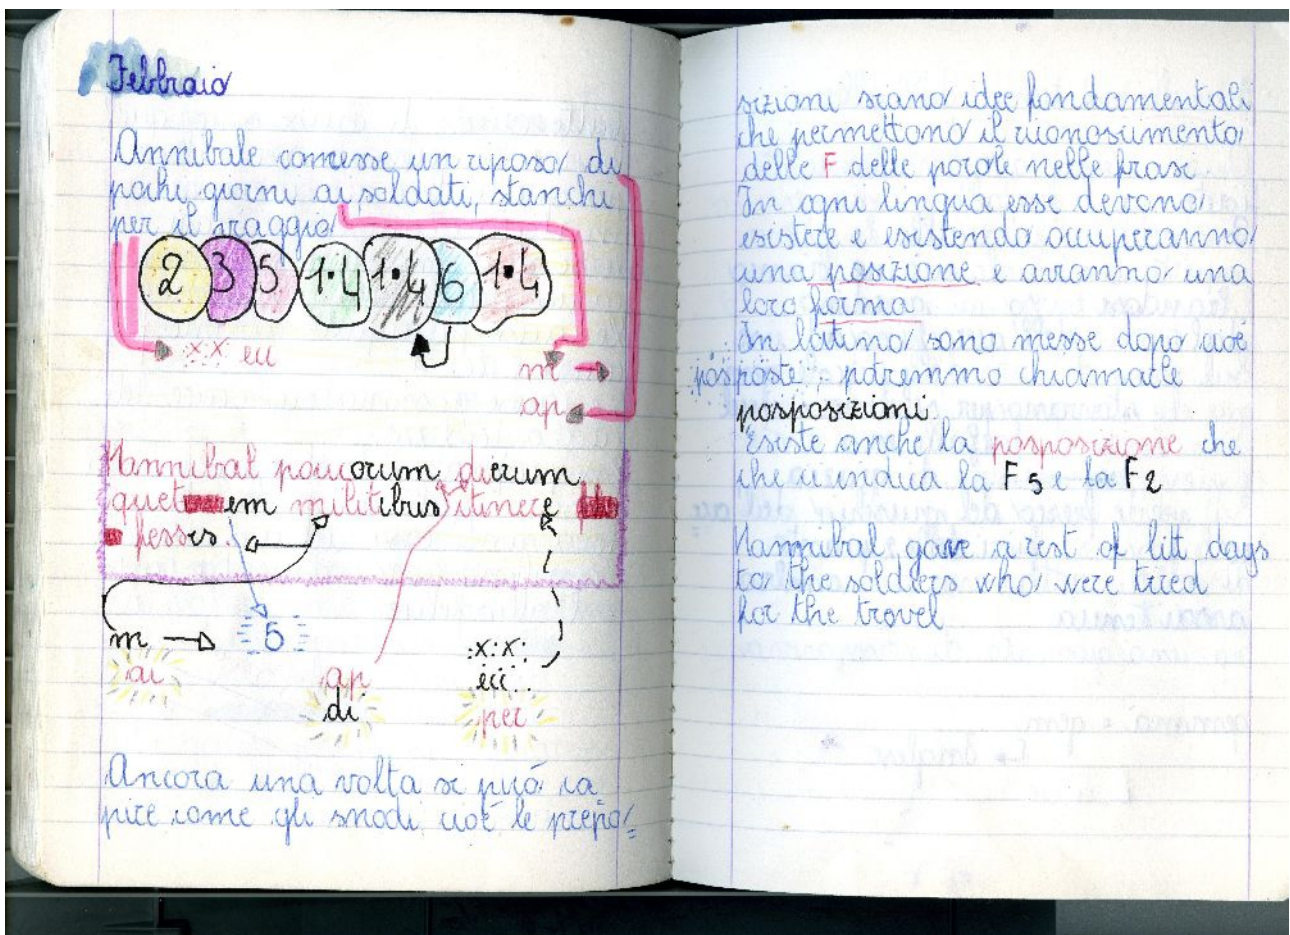 Febbraio
Annibale concesse un riposo di
pochi giorni ai soldati, stanchi
per il viaggio
2 3 5 1•4 1•4 6 1•4
x x ecc
m
ap
Hannibal paucorum dierum
quetem militibus itinere
fessis.
m 5
ai ap :x:x:
di ecc..
per
Ancora una volta si può ca
pire come gli snodi cioè le prepo=
sizioni siano idee fondamentali
che permettono il riconoscimento
delle F delle parole nelle frasi.
In ogni lingua esse devono
esistere e esistendo occuperanno
una posizione e avranno una
loro forma
In latino sono messe dopo cioè
posposte; potremmo chiamarle
posposizioni.
Esiste anche la posposizione che
che ci indica la F5 e la F2
Hannibal gave a rest of litt days
to the soldiers who were tired
for the travel